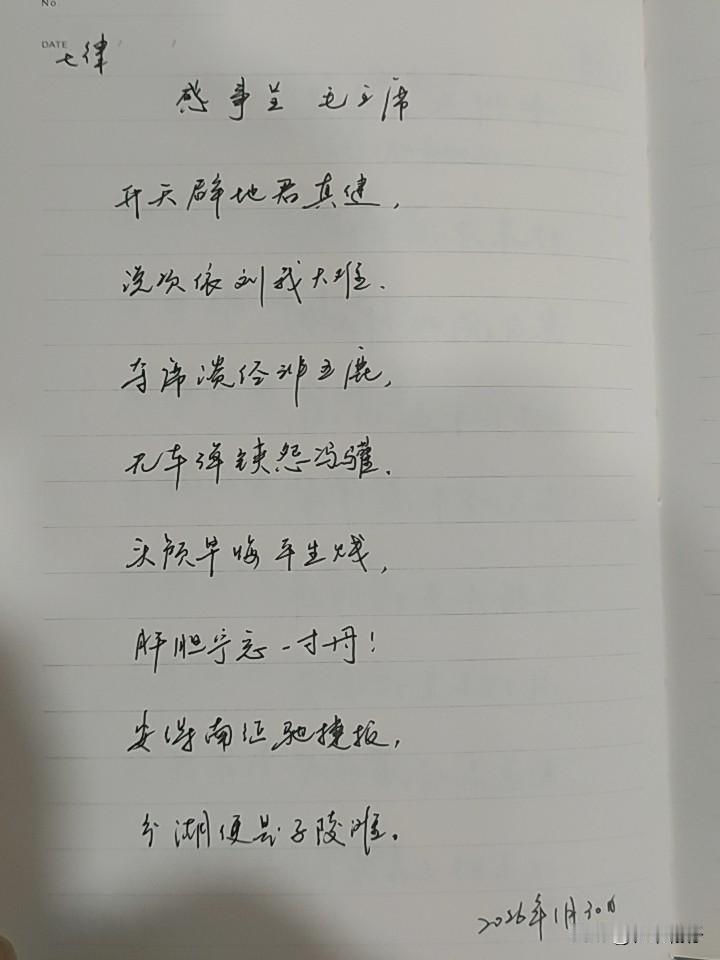 No
DATE / /
七律
感事呈 毛主席
开天辟地君真健,
说项依刘我大难.
夺席谈经非五鹿,
无车弹铗怨冯驩.
头颅早悔平生贱,
肝胆宁忘一寸丹!
安得南征驰捷报,
分湖便是子陵滩。
2026年1月30日